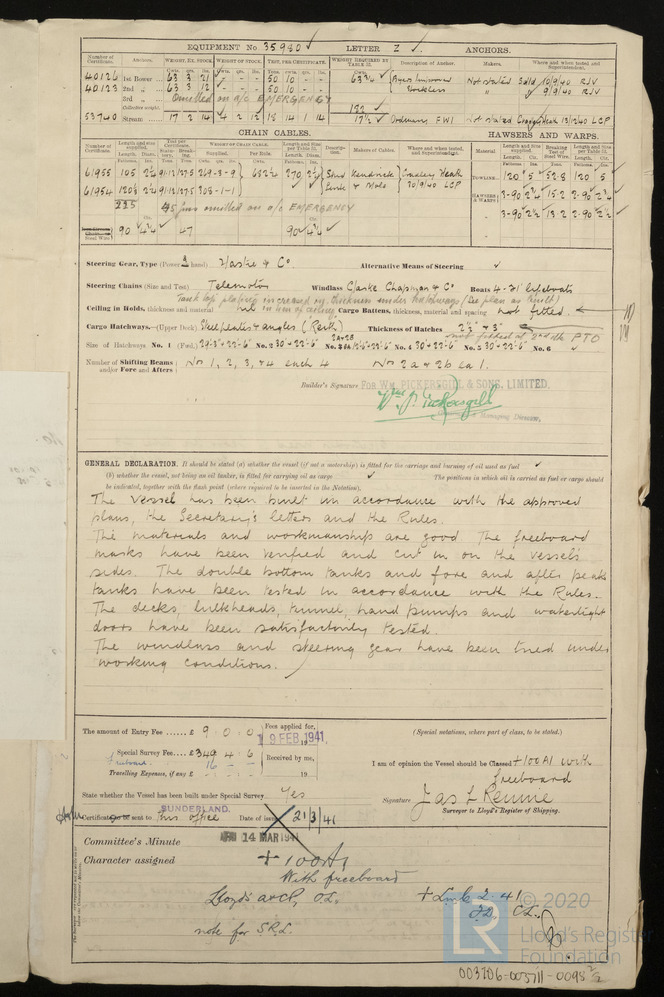 EQUIPMENT No 35980 ✓ LETTER Z ✓ ANCHORS.
Number of Certificate. Anchors. WEIGHT, EX. STOCK. WEIGHT OF STOCK. TEST, PER CERTIFICATE. WEIGHT REQUIRED BY TABLE 53. Description of Anchor. Makers. Where and when tested and Superintendent.
40126 1st Bower 63 3 21 - - - 50 10 - - 63¾ ✓ Byers Improved Not stated Sdld 10/9/40 RJV
40123 2nd " 63 3 12 - - - 50 10 - - Stockless " 9/9/40 RJV
3rd " Omitted on a/c EMERGENCY
Collective weight.
53740 Stream 17 2 14 4 2 12 18 14 1 14 17½ ✓ Ordinary FWI Not stated Cradley Heath 13/12/40 LCP
CHAIN CABLES. HAWSERS AND WARPS.
Number of Certificate. Length and size supplied. Test per Certificate. WEIGHT OF CHAIN CABLE. Length and Size per Table 53. Description. Makers of Cables. Where and when tested, and Superintendent. Material Length and Size supplied. Breaking Test of Steel Wire. Length and Size per Table 53.
61955 105 2¼ 91/127.5 269-3-9 682½ 270 2¼ Stud Kendrick Cradley Heath TOWLINE 120 5 ✓ 52.8 120 5
61954 120½ 2¼ 91/127.5 308-1-1 Link & Mole 30/9/40 LCP HAWSERS & WARPS 3-90 2¾ 15.2 2-90 2¾ ✓
225 45 fms omitted on a/c EMERGENCY 3-90 2½ 13.2 2-90 2½ ✓
Steel Wire 90 4¼ ✓ 47 90 4¼ ✓
Steering Gear, Type (Power & hand) Hastie & Co Alternative Means of Steering ✓
Steering Chains (Size and Test) Telemotor Windlass Clarke Chapman & Co Boats 4-21' lifeboats
Tank top plating increased in thickness under hatchways (See plan as built)
Ceiling in Holds, thickness and material nil in lieu of ceiling Cargo Battens, thickness, material and spacing not fitted.
Cargo Hatchways.—(Upper Deck) Steel plates & angles (Reith) Thickness of Hatches 2½" & 3"
not fitted at 2nd dk PTO
Size of Hatchways No. 1 (Fwd.) 29-3" × 22-6" No. 2 30 × 22-6" No. 4 30 × 22-6" No. 5 30 × 22-6" No. 6
Number of Shifting Beams and/or Fore and Afters } Nos 1, 2, 3, & 4 each 4 Nos 2a & 2b ea 1.
Builder's Signature FOR WM. PICKERSGILL & SONS, LIMITED.
Wm J. Pickersgill
Managing Director.
GENERAL DECLARATION. It should be stated (a) whether the vessel (if not a motorship) is fitted for the carriage and burning of oil used as fuel ✓
(b) whether the vessel, not being an oil tanker, is fitted for carrying oil as cargo ✓ The positions in which oil is carried as fuel or cargo should
be indicated, together with the flash point (where required to be inserted in the Notation).
The vessel has been built in accordance with the approved
plans, the Secretary's letters and the Rules.
The materials and workmanship are good The freeboard
marks have been verified and cut in on the vessel's
sides. The double bottom tanks and fore and after peak
tanks have been tested in accordance with the Rules.
The decks, bulkheads, tunnel, hand pumps and watertight
doors have been satisfactorily tested.
The windlass and steering gear have been tried under
working conditions.
The amount of Entry Fee ...... £ 9 : 0 : 0 Fees applied for,
19 FEB 1941
(Special notations, where part of class, to be stated.)
Special Survey Fee £ 349 : 4 : 6 Received by me,
Freeboard 16 : - : -
Travelling Expenses, if any £ - : - : - 19
I am of opinion the Vessel should be Classed +100A1 with
freeboard
State whether the Vessel has been built under Special Survey Yes
Signature Jas L Rennie
Surveyor to Lloyd's Register of Shipping.
SUNDERLAND.
Certificate to be sent to this office Date of issue 21/3/41
Committee's Minute 14 MAR 1941
Character assigned + 100A1
With freeboard
Lloyd's a & CP, O.L. + LMC 2.41
F.D. CL.
note for S.R.L.
© 2020
LR Lloyd's Register
Foundation
003706-003711-0098 2/2